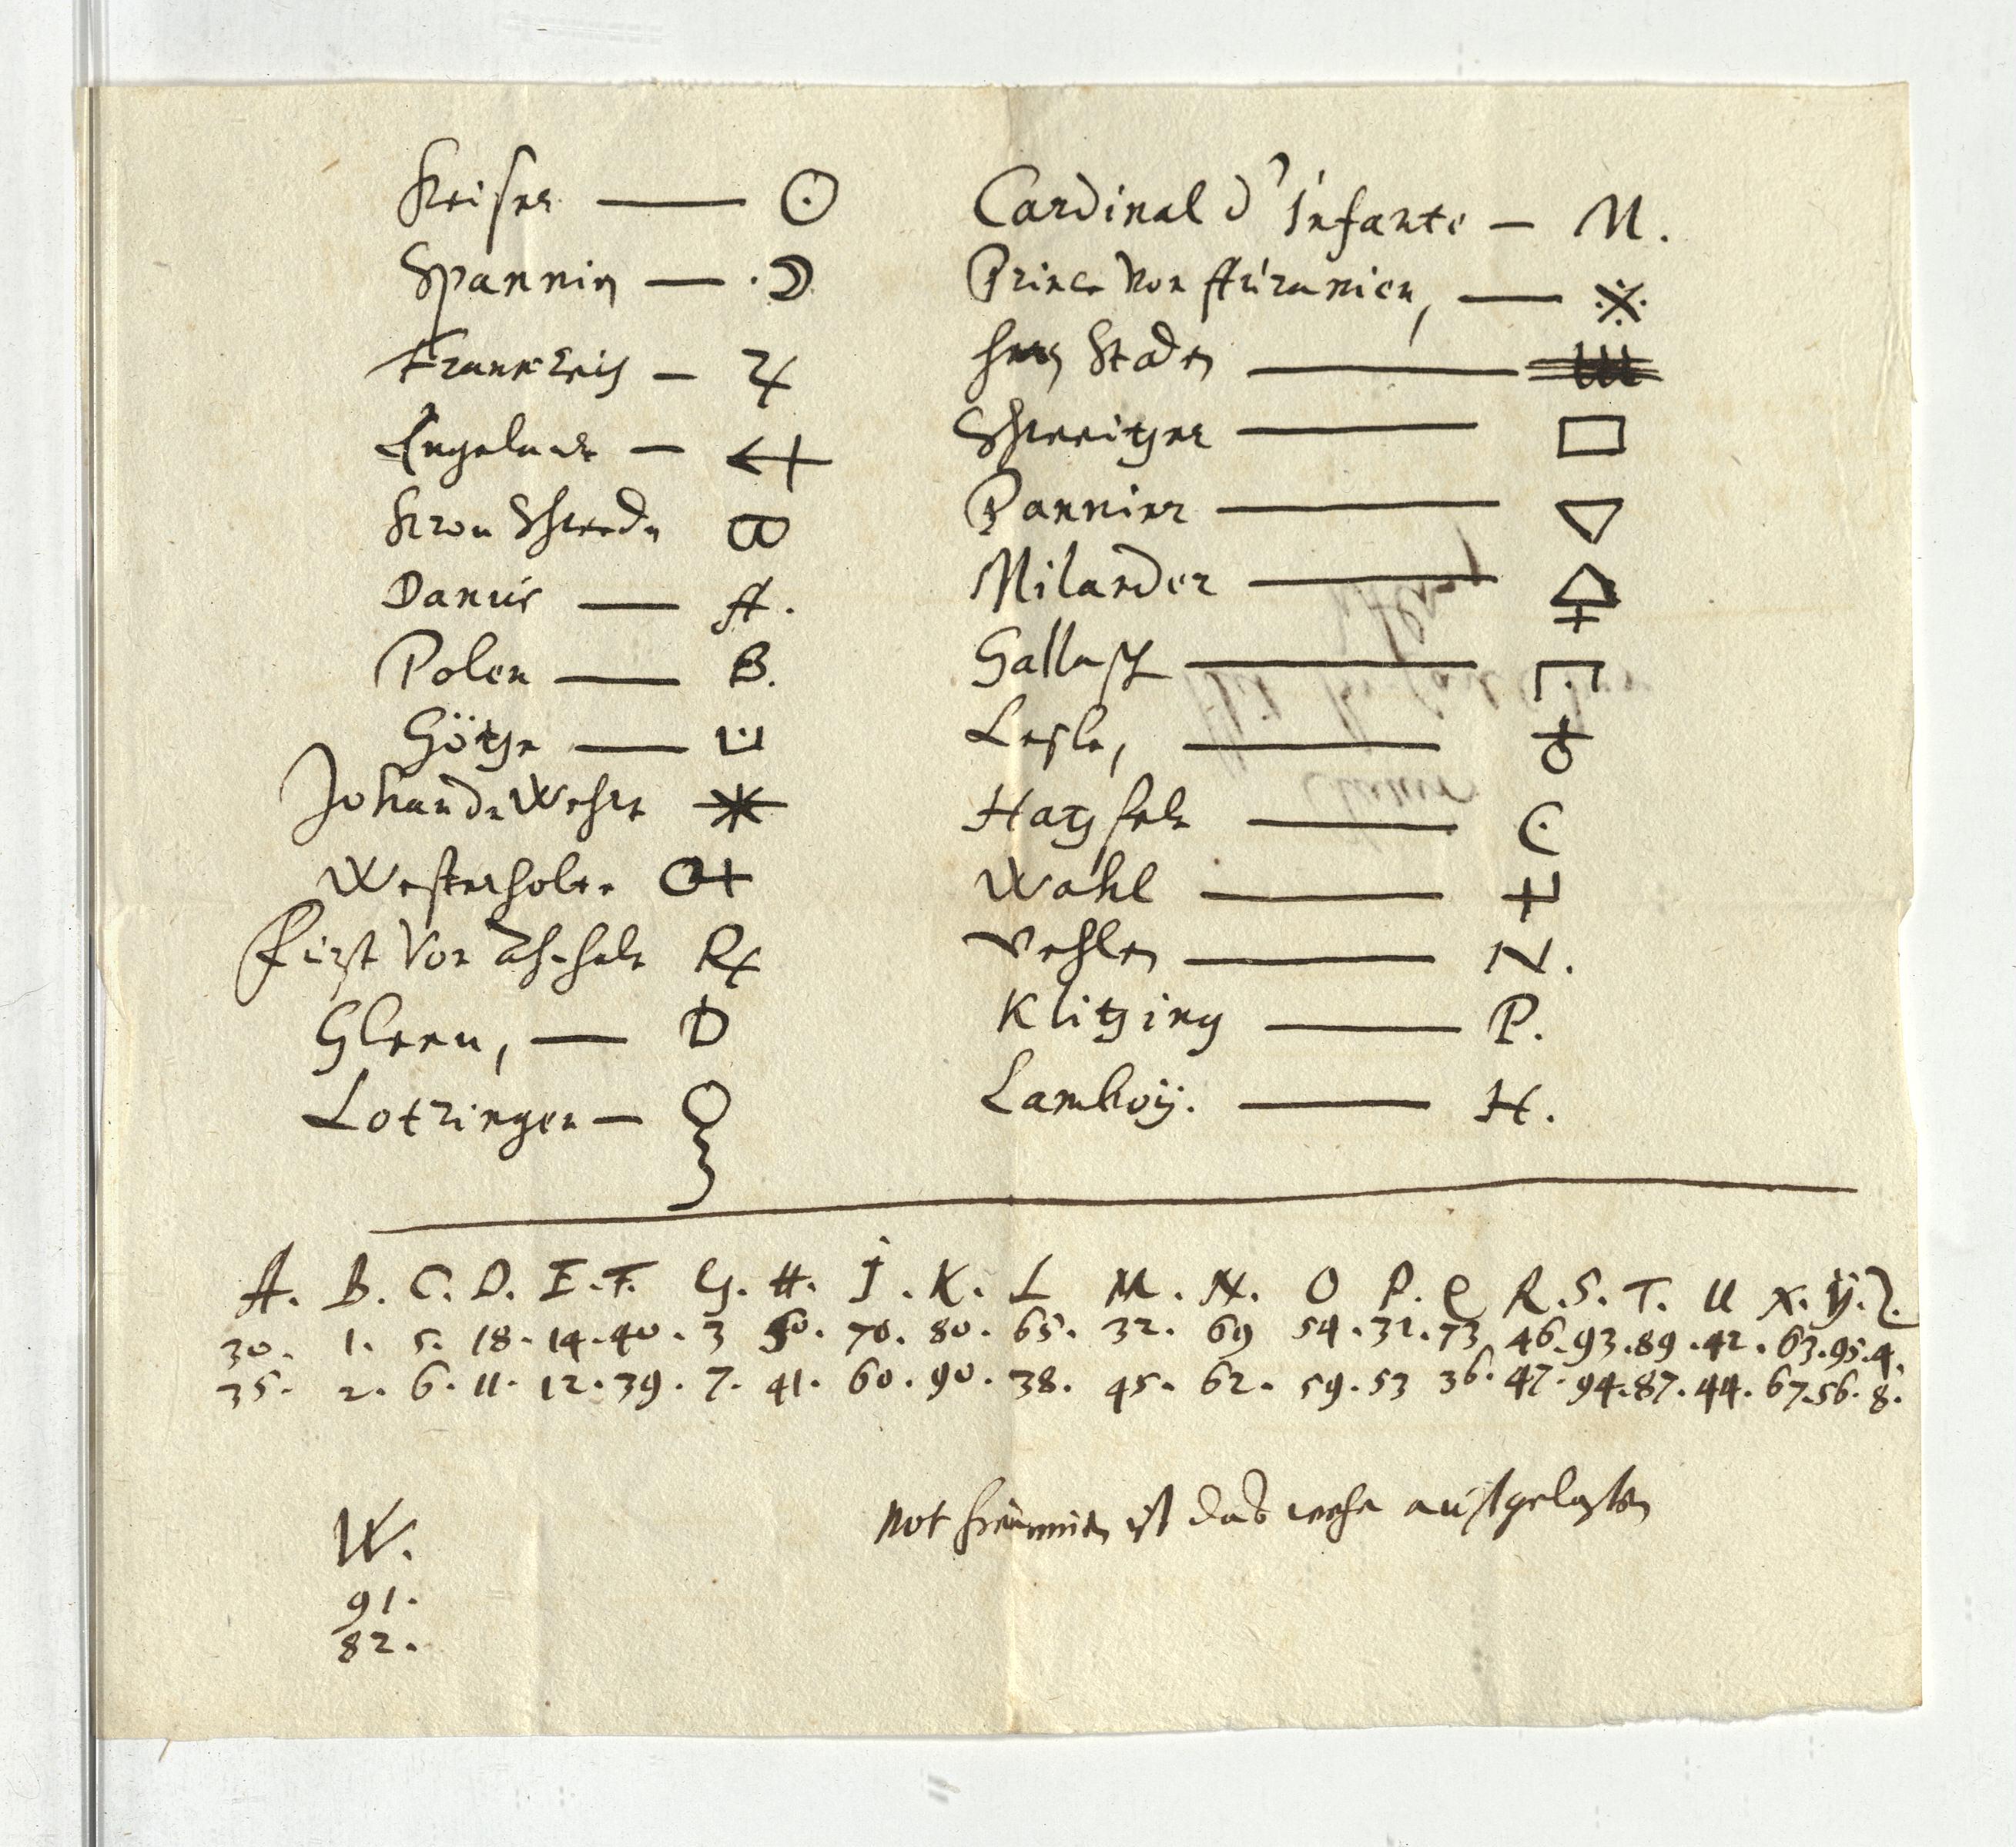 Keiser — ☉
Spannien — ·☽
Franckreich — ♃
Engelandt —
Kron Schwede
Danus — A.
Polen — B.
Götze —
Johan de Wehrt
Westerholt
Fürst Von
Gleen, — D
Lotringen —
Cardinal d'Infante — M.
Prince Von Auranien, — ※
Staden —
Schweitzer — □
Pannier — ▽
Milander —
Gallasch —
Lesle, —
Hatzfelt —
Wahl —
Vehlen — N.
Klitzing — P.
Lamboÿ. — H.
A. B. C. D. E. F. G. H. I. K. L M. N. O P. Q R. S. T. U X. Ÿ. Z.
30. 1. 5. 18. 14. 40. 3 50. 70. 80. 65. 32. 69 54. 31. 73. 46. 93. 89. 42. 63. 95. 4.
35. 2. 6. 11. 12. 39. 7. 41. 60. 90. 38. 45. 62. 59. 53 36. 47. 94. 87. 44. 67. 56. 8.
W.
91.
82.
ist das wehe ausgelassen